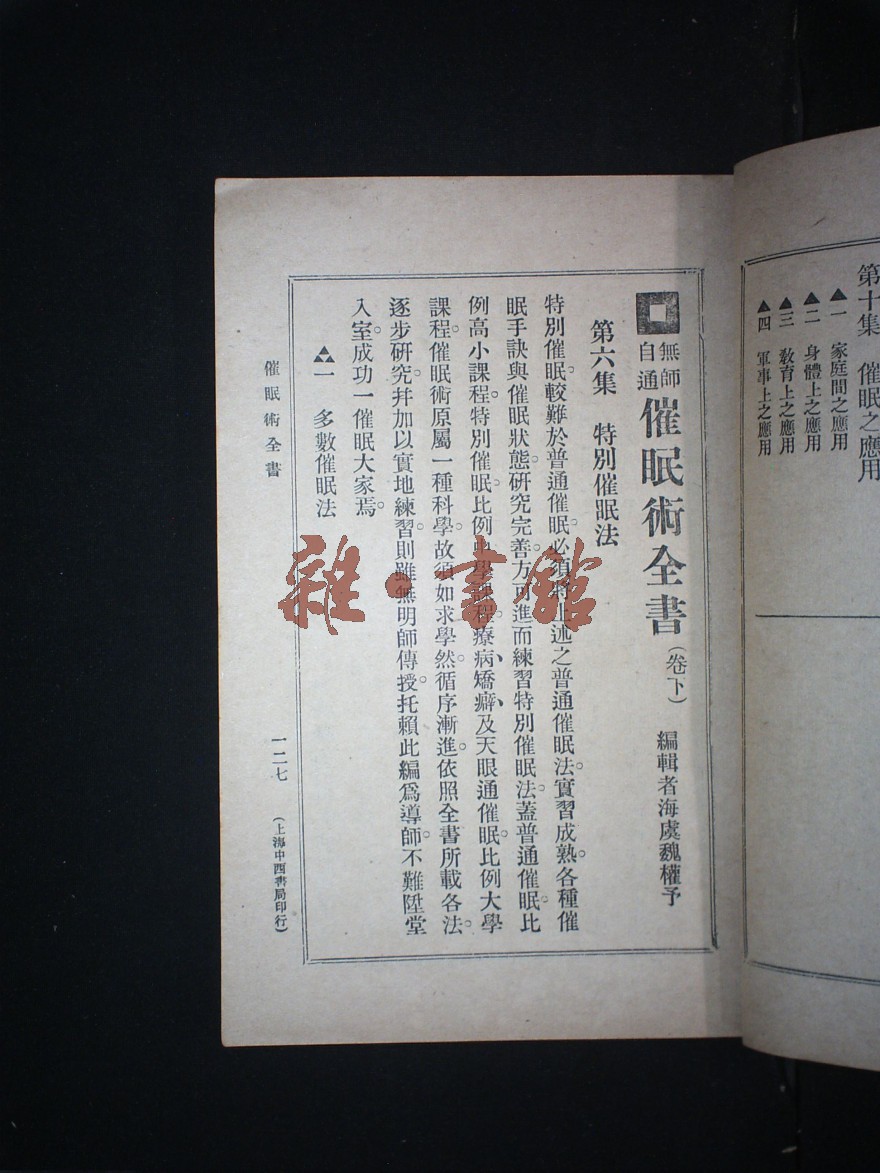 第十集　催眠之應用
▲一　家庭間之應用
▲二　身體上之應用
▲三　教育上之應用
▲四　軍事上之應用
無師自通催眠術全書（卷下）　編輯者海虞魏權予
第六集　特別催眠法
特別催眠。較難於普通催眠。必須將上述之普通催眠法。實習成熟。各種催
眠手訣與催眠狀態。研究完善。方可進而練習特別催眠法。蓋普通催眠。比
例高小課程。特別催眠。比例中學課程。療病、矯癖、及天眼通催眠。比例大學
課程。催眠術原屬一種科學。故須如求學然。循序漸進。依照全書所載各法。
逐步研究。幷加以實地練習。則雖無明師傳授。托賴此編爲導師。不難陞堂
入室。成功一催眠大家焉。
一　多數催眠法
催眠術全書
一二七
（上海中西書局印行）
雜·書館